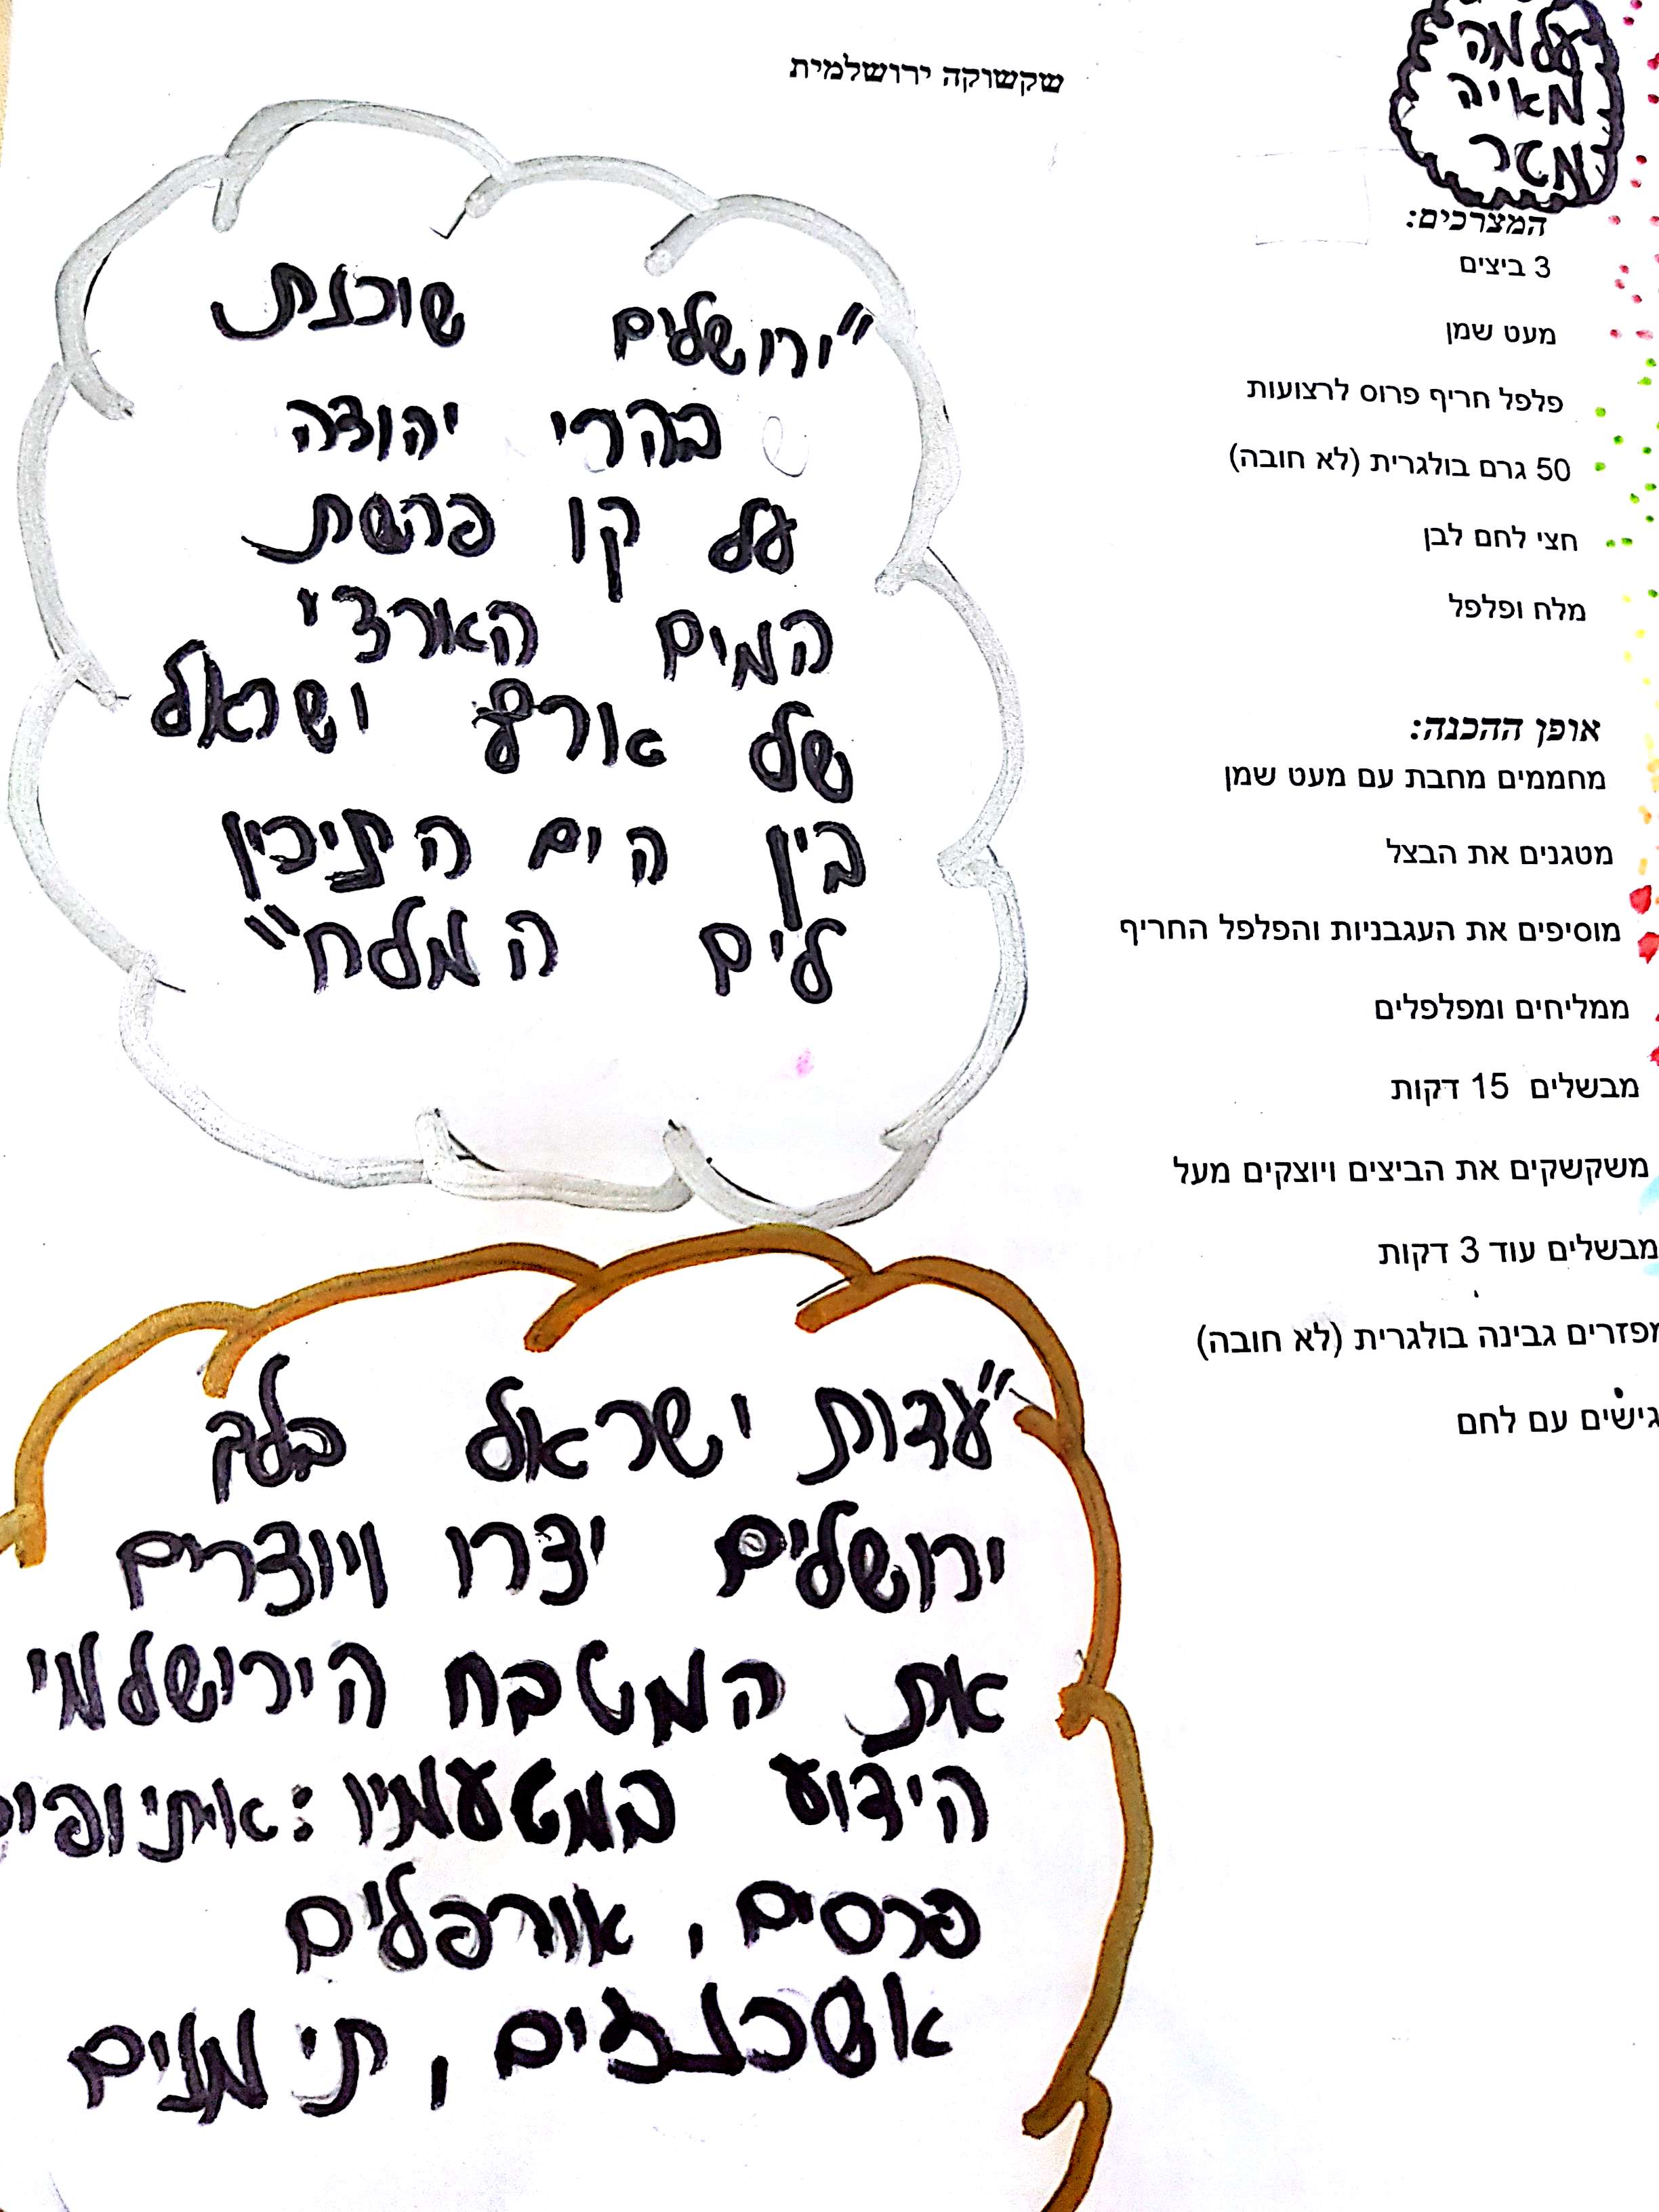 שקשוקה ירושלמית
עלמה
מאיה
מטר
המצרכים:
3 ביצים
מעט שמן
פלפל חריף פרוס לרצועות
50 גרם בולגרית (לא חובה)
חצי לחם לבן
מלח ופלפל
אופן ההכנה:
מחממים מחבת עם מעט שמן
מטגנים את הבצל
מוסיפים את העגבניות והפלפל החריף
ממליחים ומפלפלים
מבשלים 15 דקות
משקשקים את הביצים ויוצקים מעל
מבשלים עוד 3 דקות
מפזרים גבינה בולגרית (לא חובה)
גישים עם לחם
"ירושלים שוכנת
בהרי יהודה
על קו פרשת
המים הארצי
של ארץ ישראל
בין הים התיכון
לים המלח"
"עדות ישראל בלב
ירושלים יצרו ויוצרים
את המטבח הירושלמי
הידוע במטעמיו:
פרסים, אורפלים
אשכנזים, תימנים